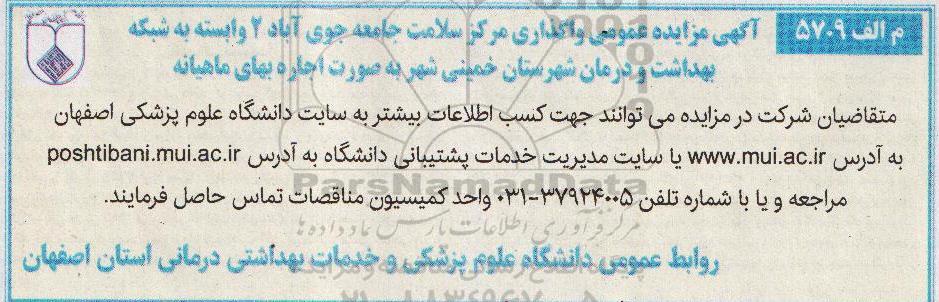 م الف ۵۷۰۹
آگهی مزایده عمومی واگذاری مرکز سلامت جامعه جوی آباد ۲ وابسته به شبکه
بهداشت و درمان شهرستان خمینی شهر به صورت اجاره بهای ماهیانه
متقاضیان شرکت در مزایده می توانند جهت کسب اطلاعات بیشتر به سایت دانشگاه علوم پزشکی اصفهان
به آدرس www.mui.ac.ir یا سایت مدیریت خدمات پشتیبانی دانشگاه به آدرس poshtibani.mui.ac.ir
مراجعه و یا با شماره تلفن ۳۷۹۲۴۰۰۵-۰۳۱ واحد کمیسیون مناقصات تماس حاصل فرمایند.
ParsNamadData
مرکز فرآوری اطلاعات پارس نماد داده ها
روابط عمومی دانشگاه علوم پزشکی و خدمات بهداشتی درمانی استان اصفهان